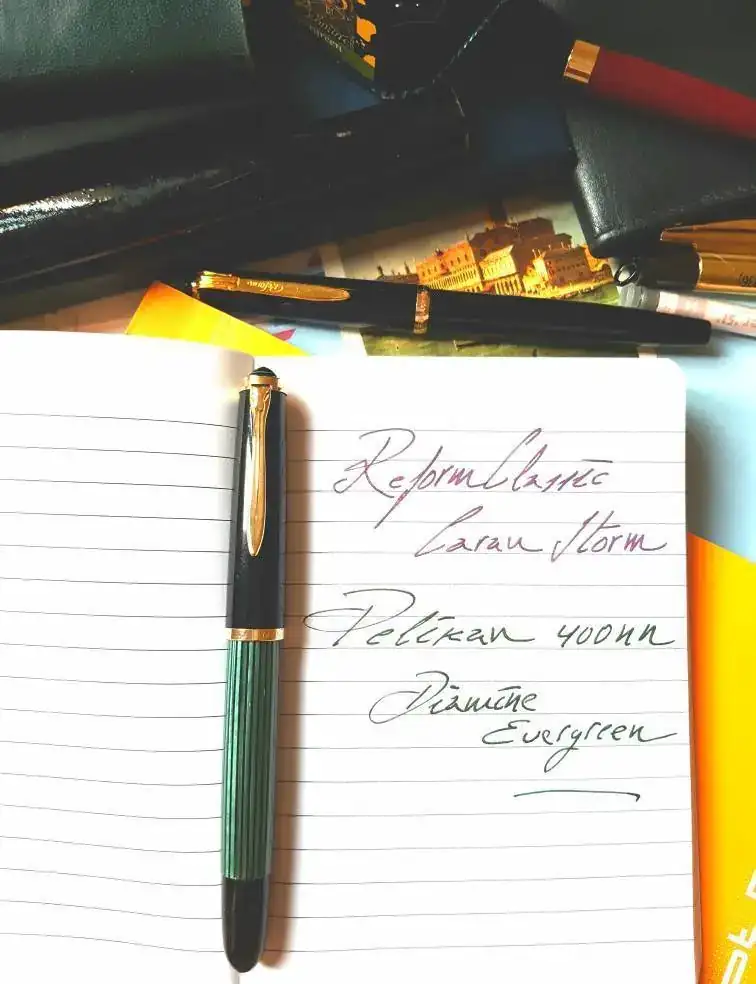 Reform
Reform Classic
Caran Storm
Pelikan 400nn
Diamine
Evergreen